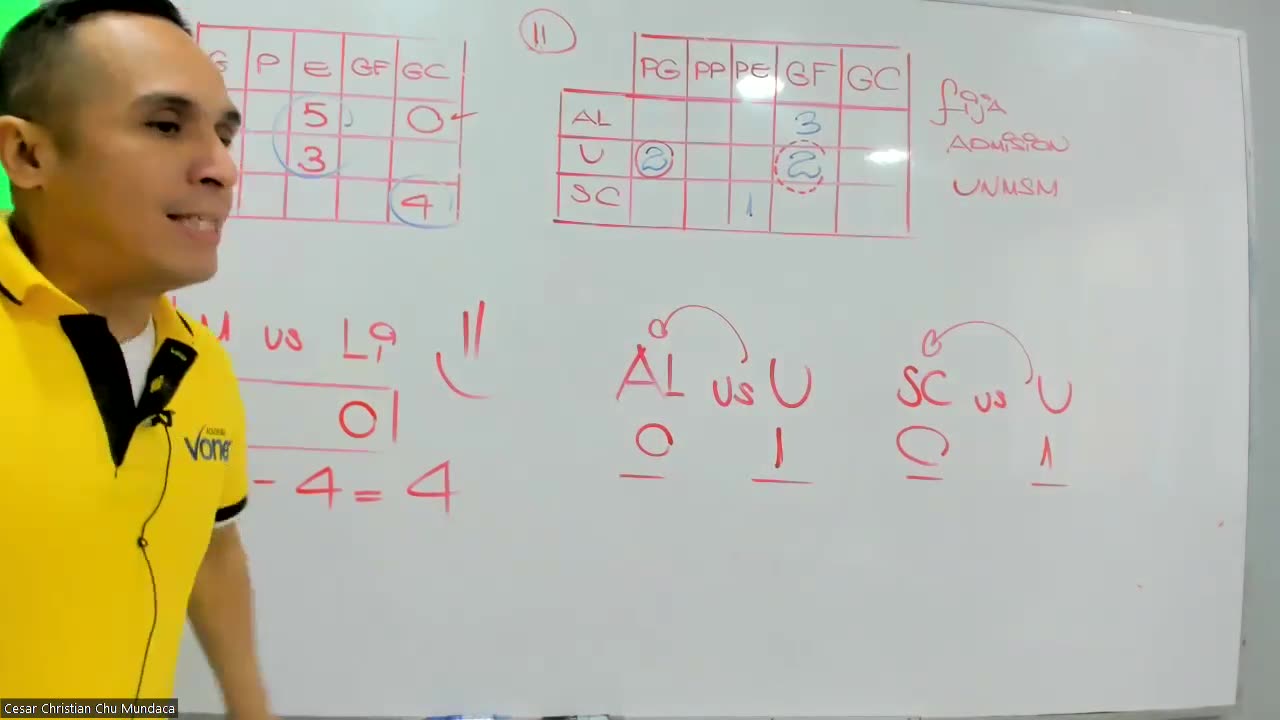 G P E GF GC
5 0
3
4
M vs Li
01
- 4 = 4
11
PG PP PE GF GC
AL 3
U 2 2
SC 1
fija
ADMISION
UNMSM
AL vs U
0 1
SC vs U
0 1
Vone
Cesar Christian Chu Mundaca